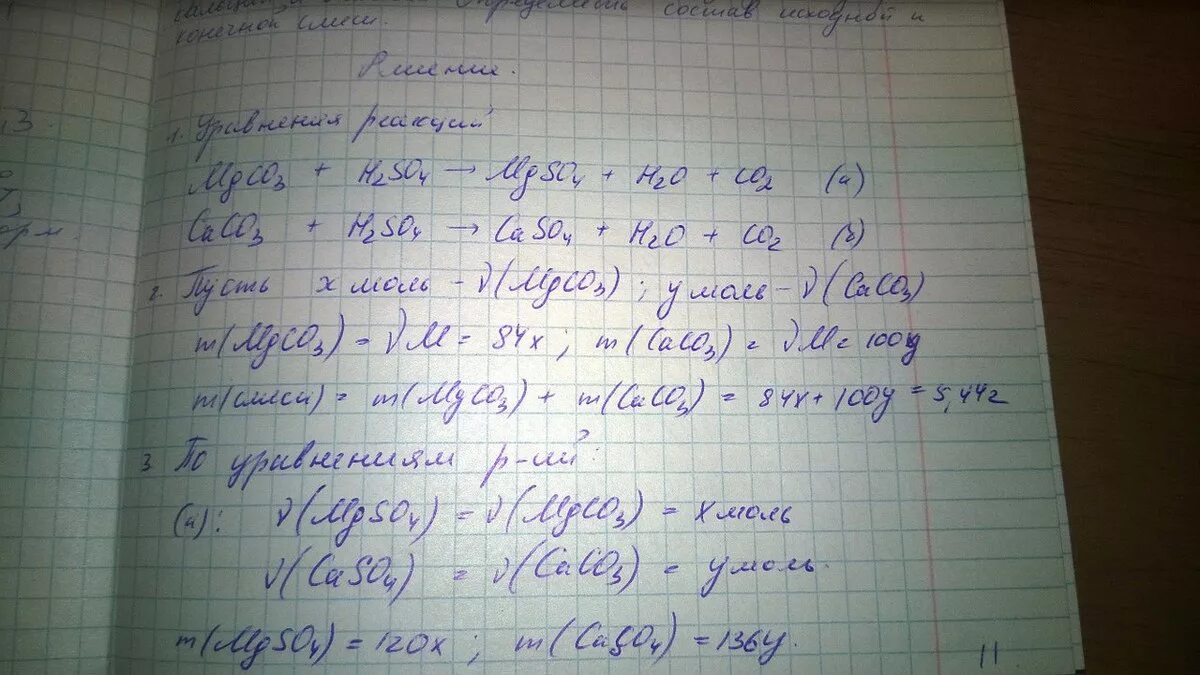 состав исходной и
конечной смеси.
Решение.
1. Уравнения реакций
MgCO3 + H2SO4 → MgSO4 + H2O + CO2 (а)
CaCO3 + H2SO4 → CaSO4 + H2O + CO2 (б)
2. Пусть x моль - ν(MgCO3); y моль - ν(CaCO3)
m(MgCO3) = νM = 84x; m(CaCO3) = νM = 100y
m(смеси) = m(MgCO3) + m(CaCO3) = 84x + 100y = 5,44г
3. По уравнениям р-ий:
(а): ν(MgSO4) = ν(MgCO3) = x моль
ν(CaSO4) = ν(CaCO3) = y моль.
m(MgSO4) = 120x; m(CaSO4) = 136y.
11